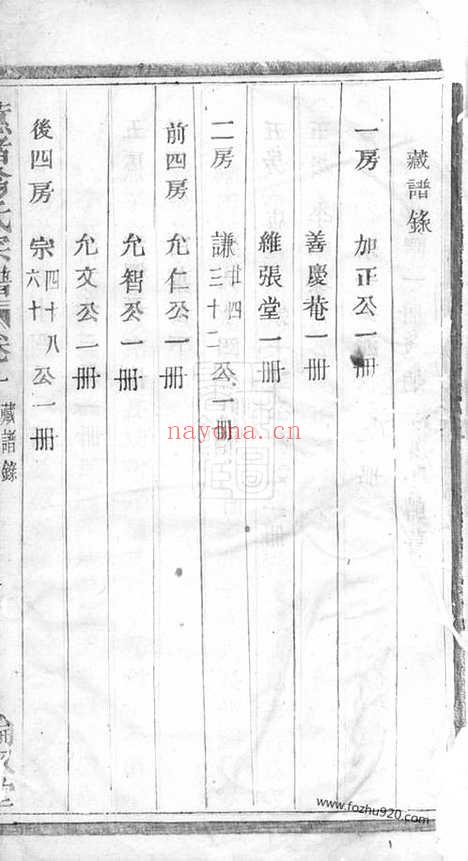 藏譜錄
一房 加正公一冊
善慶菴一冊
維張堂一冊
二房 謙廿四三十二公一冊
前四房 允仁公一冊
允智公一冊
允文公二冊
後四房 宗四十八六十公一冊
氏宗譜 卷一 藏譜錄
nayona.cn
www.fozhu920.com